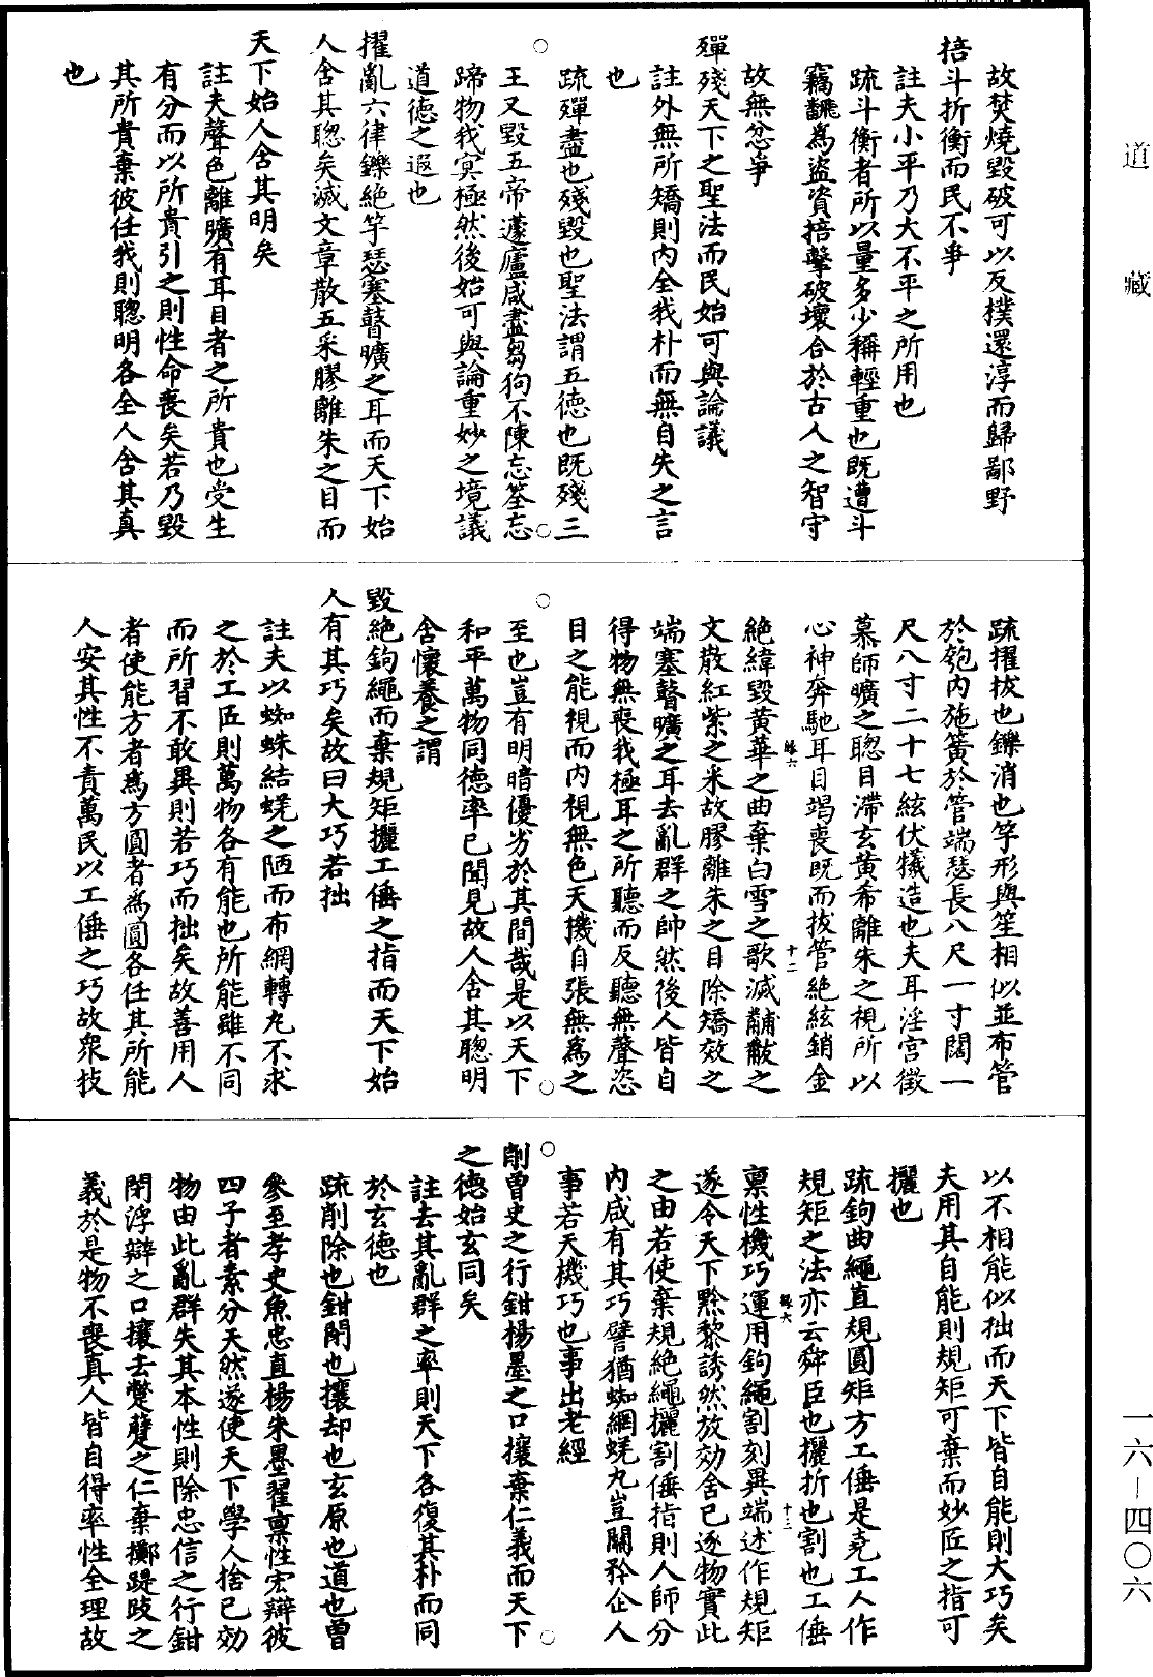 道藏
故焚燒毀破可以反樸還淳而歸鄙野
掊斗折衡而民不爭
註夫小平乃大不平之所用也
疏斗衡者所以量多少稱輕重也既遭斗
竊翻爲盜資掊擊破壞合於古人之智守
故無忿爭
殫殘天下之聖法而民始可與論議
註外無所矯則內全我朴而無自失之言
也
疏殫盡也殘毀也聖法謂五德也既殘三
王又毀五帝蘧廬咸盡芻狗不陳忘筌忘
蹄物我冥極然後始可與論重妙之境議
道德之遐也
擢亂六律鑠絶竽瑟塞瞽曠之耳而天下始
人含其聰矣滅文章散五采膠離朱之目而
天下始人含其明矣
註夫聲色離曠有耳目者之所貴也受生
有分而以所貴引之則性命喪矣若乃毀
其所貴棄彼任我則聰明各全人含其真
也
疏擢拔也鑠消也竽形與笙相似並布管
於匏內施簧於管端瑟長八尺一寸闊一
尺八寸二十七絃伏犧造也夫耳淫宮徵
慕師曠之聰目滯玄黃希離朱之視所以
心神奔馳耳目竭喪既而拔管絕絃銷金
絕緯毀黃華之曲棄白雪之歌滅黼黻之
文散紅紫之采故膠離朱之目除矯效之
端塞瞽曠之耳去亂群之帥然後人皆自
得物無喪我極耳之所聽而反聽無聲恣
目之能視而內視無色天機自張無爲之
至也豈有明暗優劣於其間哉是以天下
和平萬物同德率已聞見故人含其聰明
含懷養之謂
毀絶鉤繩而棄規矩攦工倕之指而天下始
人有其巧矣故曰大巧若拙
註夫以蜘蛛結蜣之陋而布網轉丸不求
之於工匠則萬物各有能也所能雖不同
而所習不敢異則若巧而拙矣故善用人
者使能方者爲方圓者爲圓各任其所能
人安其性不責萬民以工倕之巧故衆技
以不相能似拙而天下皆自能則大巧矣
夫用其自能則規矩可棄而妙匠之指可
攦也
疏鉤曲繩直規圓矩方工倕是堯工人作
規矩之法亦云舜臣也攦折也割也工倕
稟性機巧運用鉤繩割刻異端述作規矩
遂令天下黔黎誘然放効舍已逐物實此
之由若使棄規絕繩攦割倕指則人師分
內咸有其巧譬猶蜘網蜣丸豈關矜企人
事若天機巧也事出老經
削曾史之行鉗楊墨之口攘棄仁義而天下
之德始玄同矣
註去其亂群之率則天下各復其朴而同
於玄德也
疏削除也鉗閉也攘却也玄原也道也曾
參至孝史魚忠直楊朱墨翟稟性宏辯彼
四子者素分天然遂使天下學人捨已効
物由此亂群失其本性則除忠信之行鉗
閉浮辯之口攘去蹩躠之仁棄擲踶跂之
義於是物不喪真人皆自得率性全理故
一六—四〇六